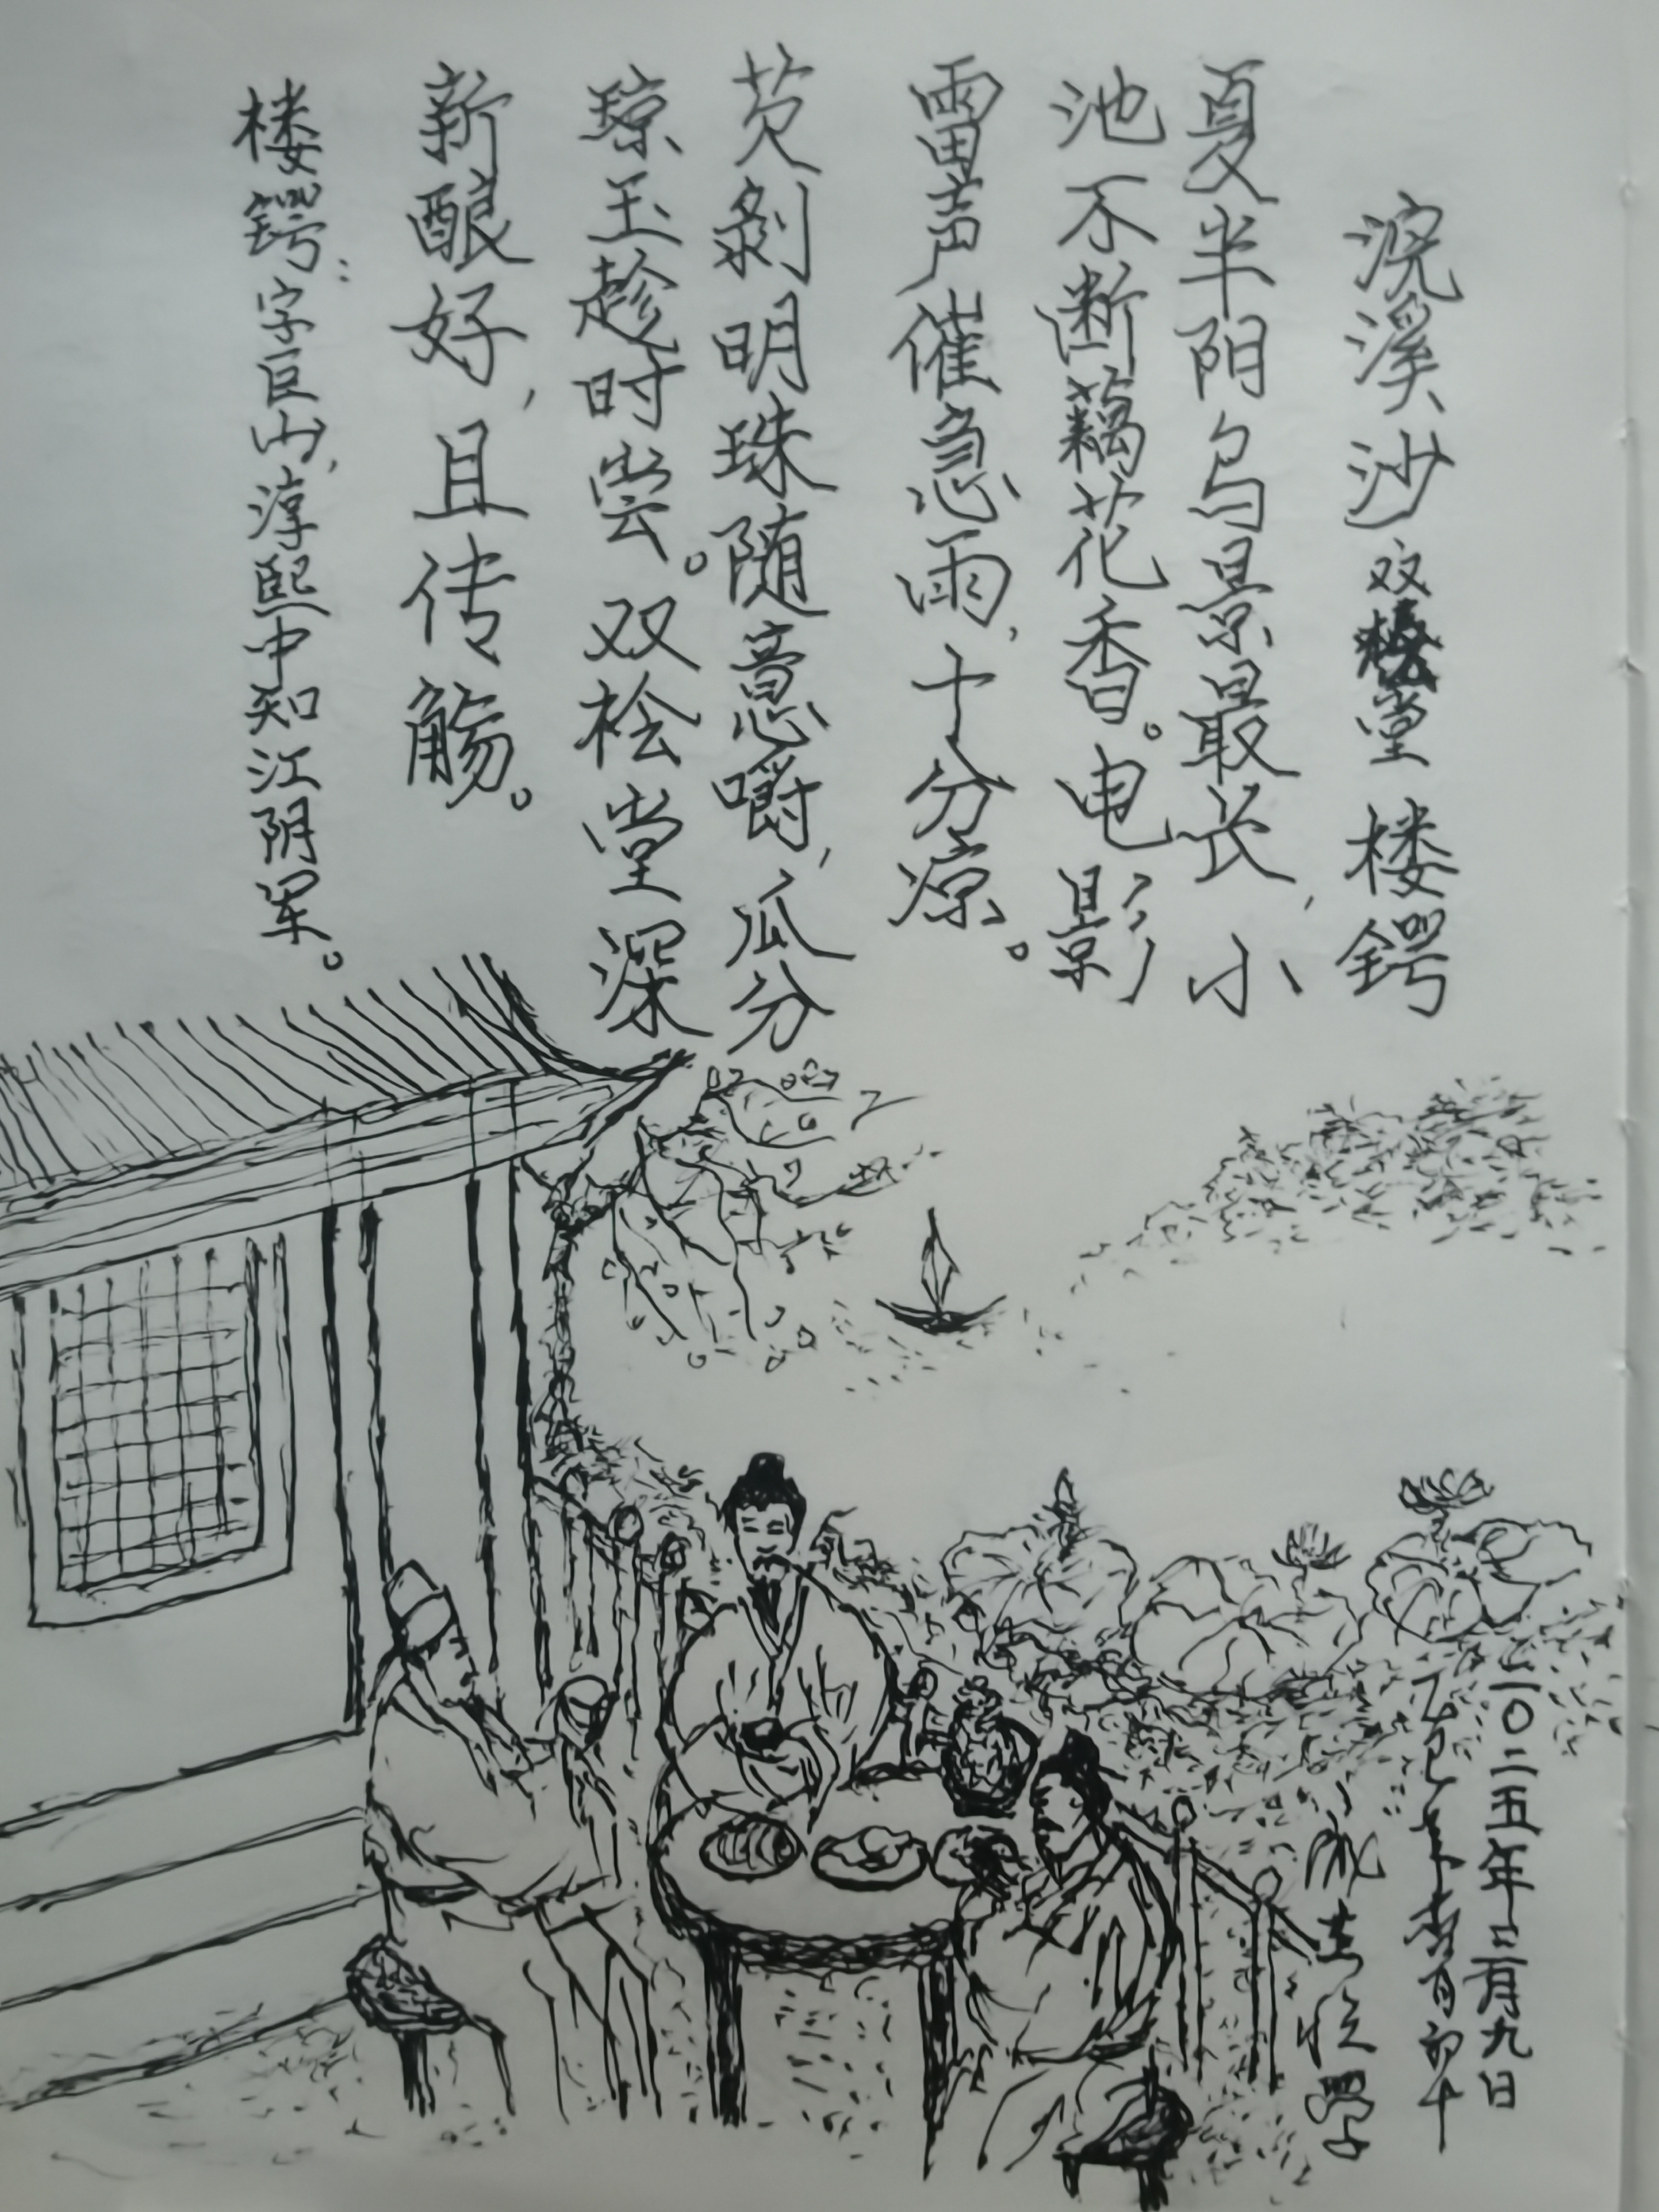 浣溪沙 双桧堂 楼锷
夏半阴匀景最长，小
池不断藕花香。电影
雷声催急雨，十分凉。
芡剥明珠随意嚼，瓜分
琼玉趁时尝。双桧堂深
新酿好，且传觞。
楼锷：字巨山，淳熙中知江阴军。
二〇二五年二月九日
乙巳年